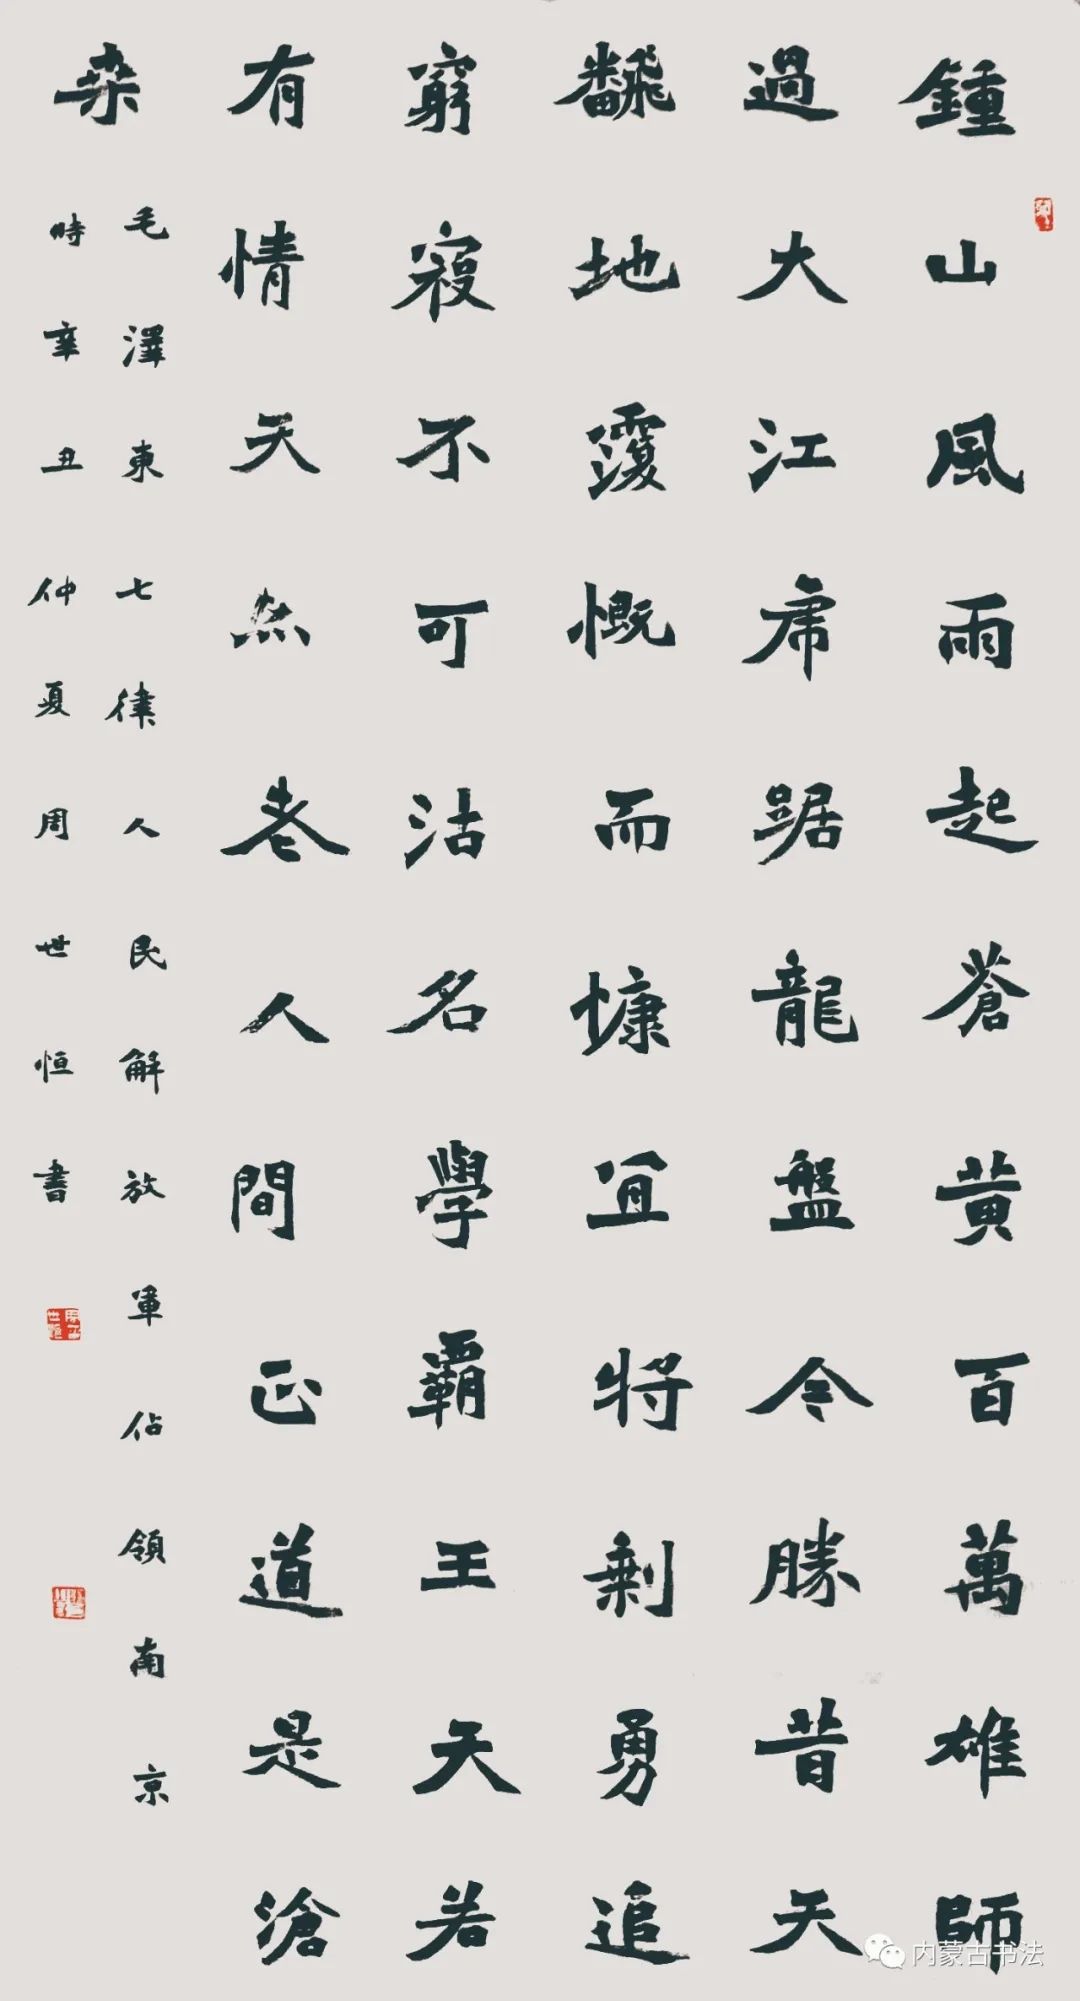 鍾山風雨起蒼黃百萬雄師
過大江虎踞龍盤今勝昔天
飜地覆慨而慷宜將剩勇追
窮寇不可沽名學霸王天若
有情天亦老人間正道是滄
桑
毛澤東七律人民解放軍佔領南京
時辛丑仲夏周世恒書
内蒙古书法